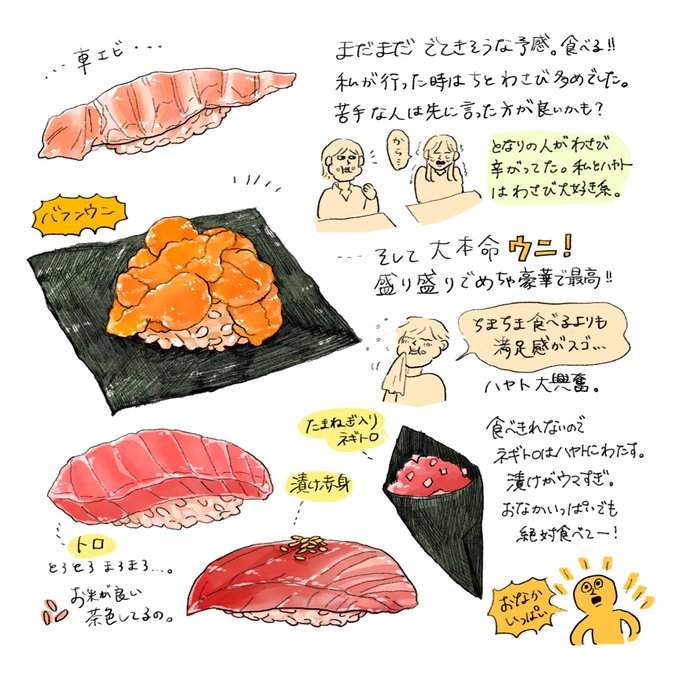 車エビ
まだまだ でてきそうな予感。食べる!!
私が行った時はちとわさび多めでした。
苦手な人は先に言った方が良いかも?
から…
となりの人がわさび
辛がってた。私とハヤト
はわさび大好き系。
バフンウニ
そして 大本命 ウニ!
盛り盛りでめちゃ豪華で最高!!
ちまちま食べるよりも
満足感がスゴ…
ハヤト 大興奮。
たまねぎ入り
ネギトロ
食べきれないので
ネギトロはハヤトにわたす。
漬けがウマすぎ。
おなかいっぱいでも
絶対食べてー!
漬け赤身
トロ
とろとろ まろまろ…。
お米が良い
茶色してるの。
おなか
いっぱい